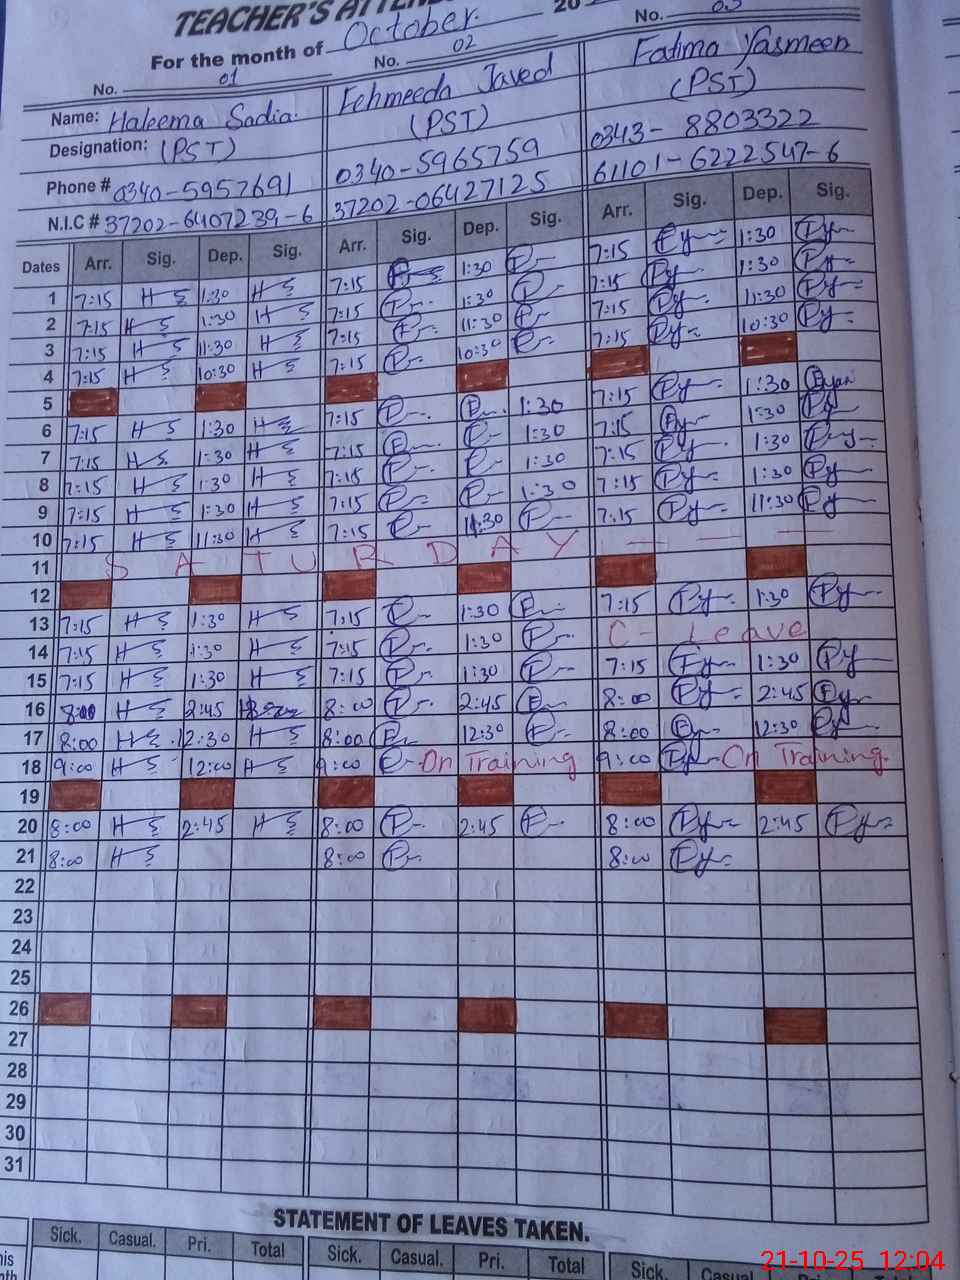 TEACHER'S ATTEN
For the month of October. 20
No. 01 No. 02 No. 03
Name: Haleema Sadia. Fehmeeda Javed Fatima Yasmeen
Designation: (PST) (PST) (PST)
Phone # 0340-5957691 0340-5965759 0343-8803322
N.I.C # 37202-6407239-6 37202-06427125 61101-6222547-6
Dates Arr. Sig. Dep. Sig. Arr. Sig. Dep. Sig. Arr. Sig. Dep. Sig.
1 7:15 1:30 7:15 1:30 7:15 1:30
2 7:15 1:30 7:15 1:30 7:15 1:30
3 7:15 11:30 7:15 11:30 7:15 11:30
4 7:15 10:30 7:15 10:30 7:15 10:30
5
6 7:15 1:30 7:15 1:30 7:15 1:30
7 7:15 1:30 7:15 1:30 7:15 1:30
8 7:15 1:30 7:15 1:30 7:15 1:30
9 7:15 1:30 7:15 1:30 7:15 1:30
10 7:15 11:30 7:15 11:30 7:15 11:30
11 S A T U R D A Y
12
13 7:15 1:30 7:15 1:30 7:15 1:30
14 7:15 1:30 7:15 1:30 C- Leave
15 7:15 1:30 7:15 1:30 7:15 1:30
16 8:00 2:45 8:00 2:45 8:00 2:45
17 8:00 12:30 8:00 12:30 8:00 12:30
18 9:00 12:00 9:00 On Training 9:00 On Training.
19
20 8:00 2:45 8:00 2:45 8:00 2:45
21 8:00 8:00 8:00
22
23
24
25
26
27
28
29
30
31
STATEMENT OF LEAVES TAKEN.
Sick. Casual. Pri. Total Sick. Casual. Pri. Total Sick. Casual
21-10-25 12:04